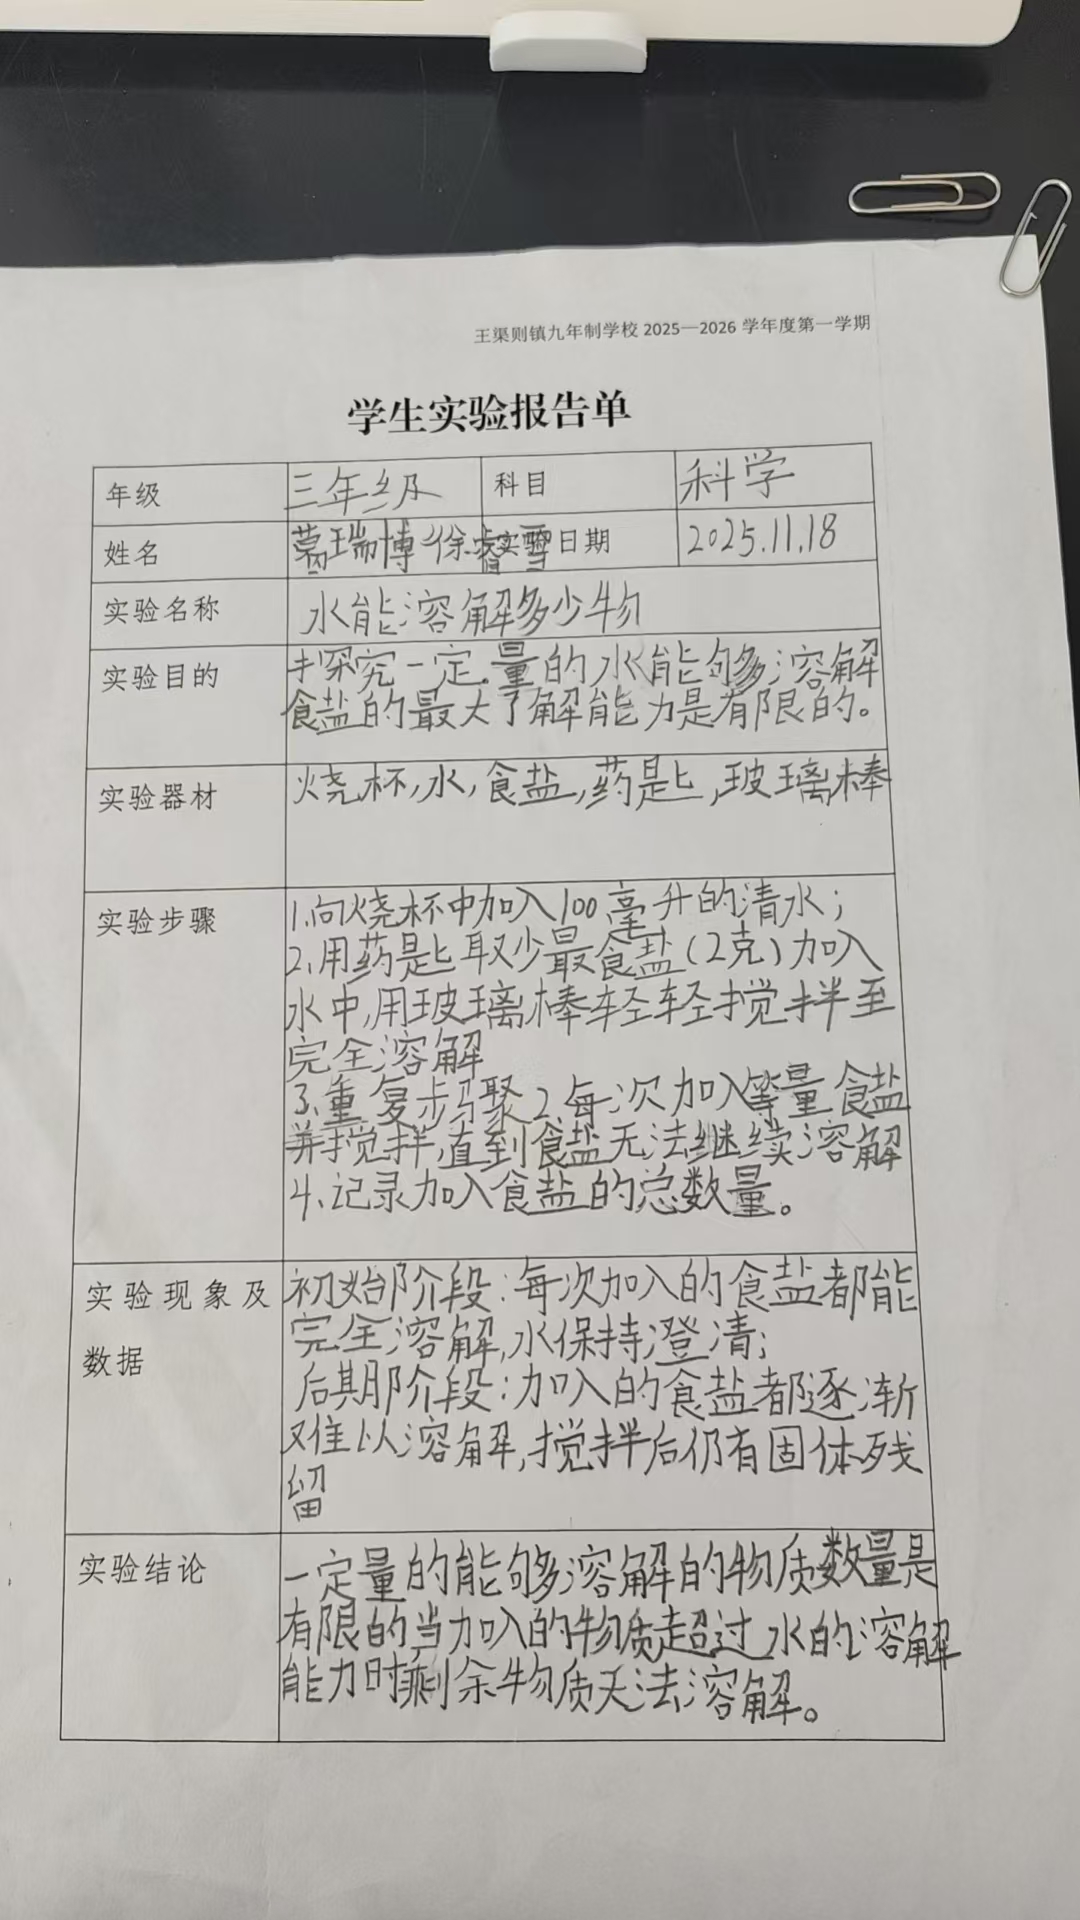 王渠则镇九年制学校 2025—2026 学年度第一学期
学生实验报告单
年级 三年级 科目 科学
姓名 葛瑞博 徐睿雪 实验日期 2025.11.18
实验名称 水能溶解多少物
实验目的 探究一定量的水能够溶解
食盐的最大了解能力是有限的。
实验器材 烧杯,水,食盐,药匙,玻璃棒
实验步骤 1.向烧杯中加入100毫升的清水;
2.用药匙取少最食盐(2克)加入
水中,用玻璃棒轻轻搅拌至
完全溶解
3.重复步骤2.每次加入等量食盐
并搅拌,直到食盐无法继续溶解
4.记录加入食盐的总数量。
实验现象及
数据
初始阶段:每次加入的食盐都能
完全溶解,水保持澄清;
后期那阶段:加入的食盐都逐渐
难以溶解,搅拌后仍有固体残
留
实验结论 一定量的能够溶解的物质数量是
有限的当加入的物质超过水的溶解
能力时剩余物质无法溶解。